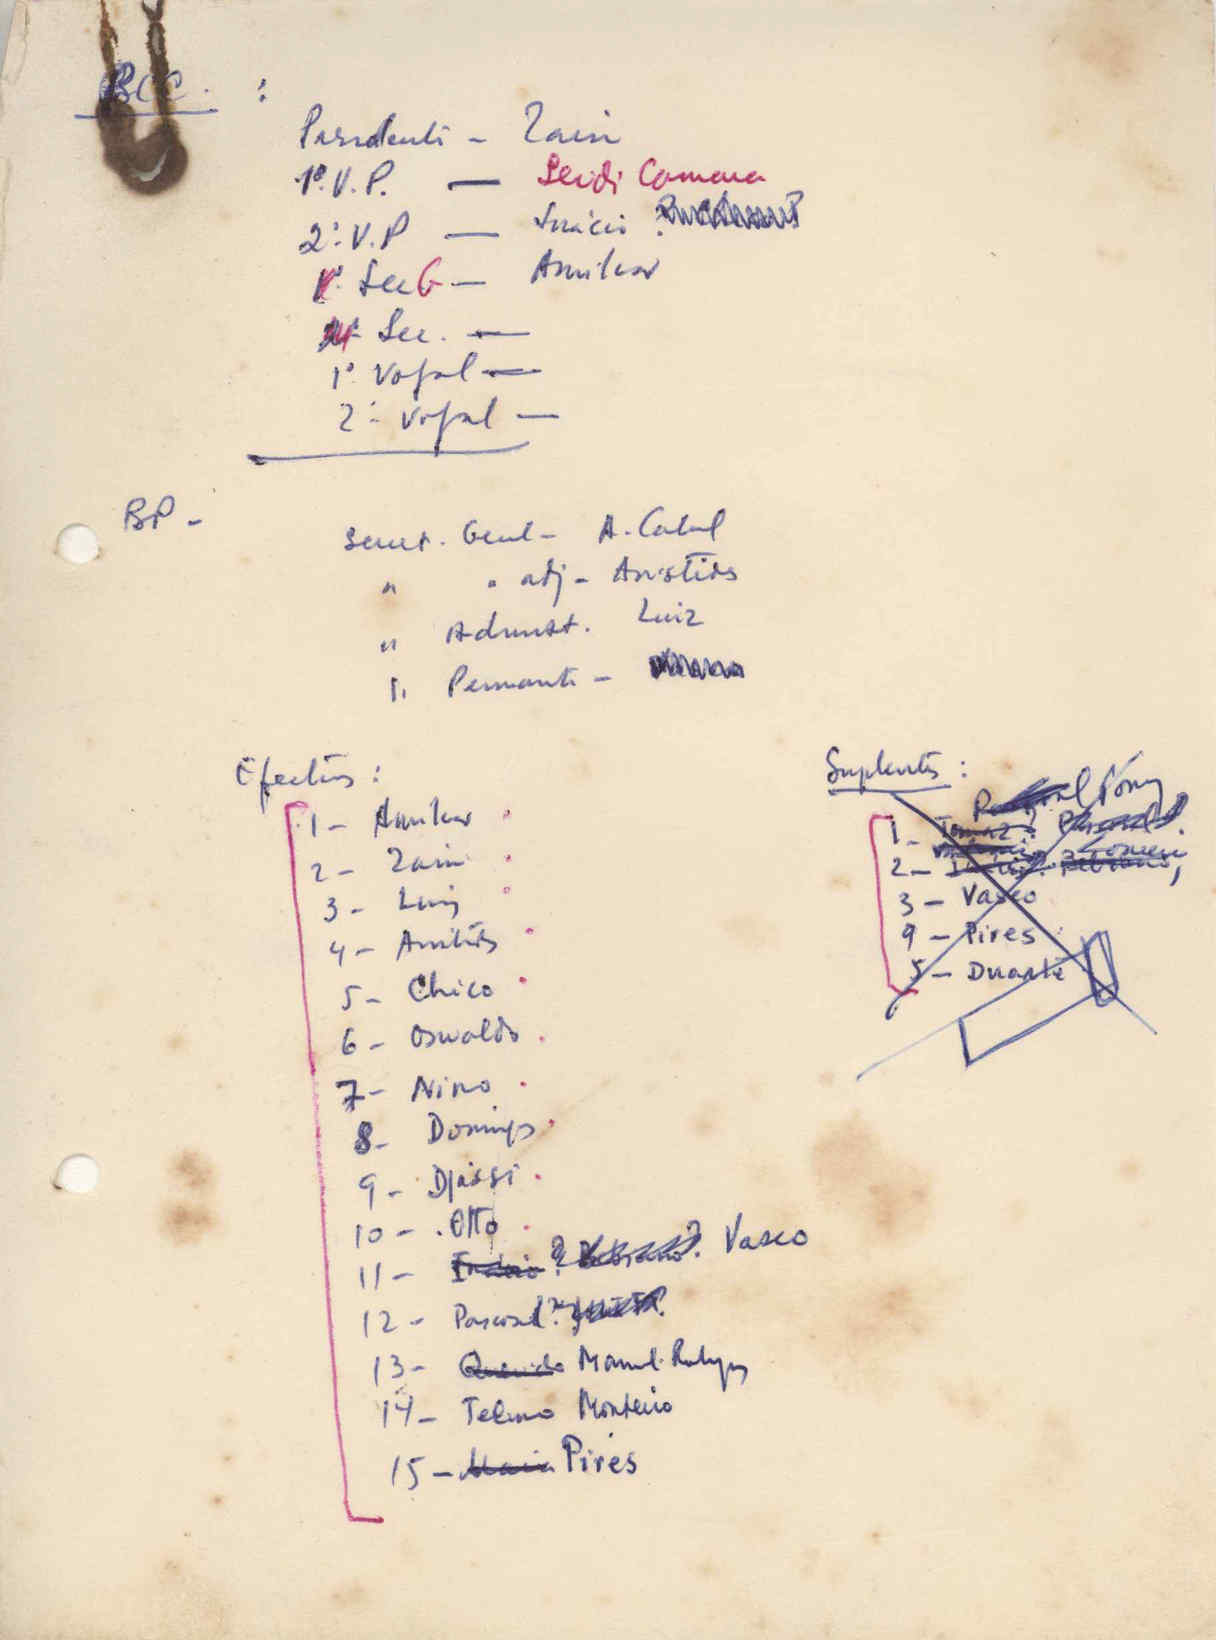 BCC. :
Presidente - Zain
1º. V. P. — Seidi Camara
2º. V. P — Inácio
Sec G — Amílcar
Sec. —
1º Vogal —
2º Vogal —
BP -
Secret. Geral - A. Cabral
" " adj - Aristides
" Administ. Luiz
" Permanente -
Efectivos :
1 - Amílcar
2 - Zain
3 - Luiz
4 - Aristides
5 - Chico
6 - Oswaldo
7 - Nino
8 - Domingos
9 - Djassi
10 - Otto
11 - Inácio? Vasco
12 - Pascoal?
13 - Querido Manuel Rodrigues
14 - Telmo Monteiro
15 - Maria Pires
Suplentes :
1 -
2 -
3 - Vasco
4 - Pires
5 - Duarte